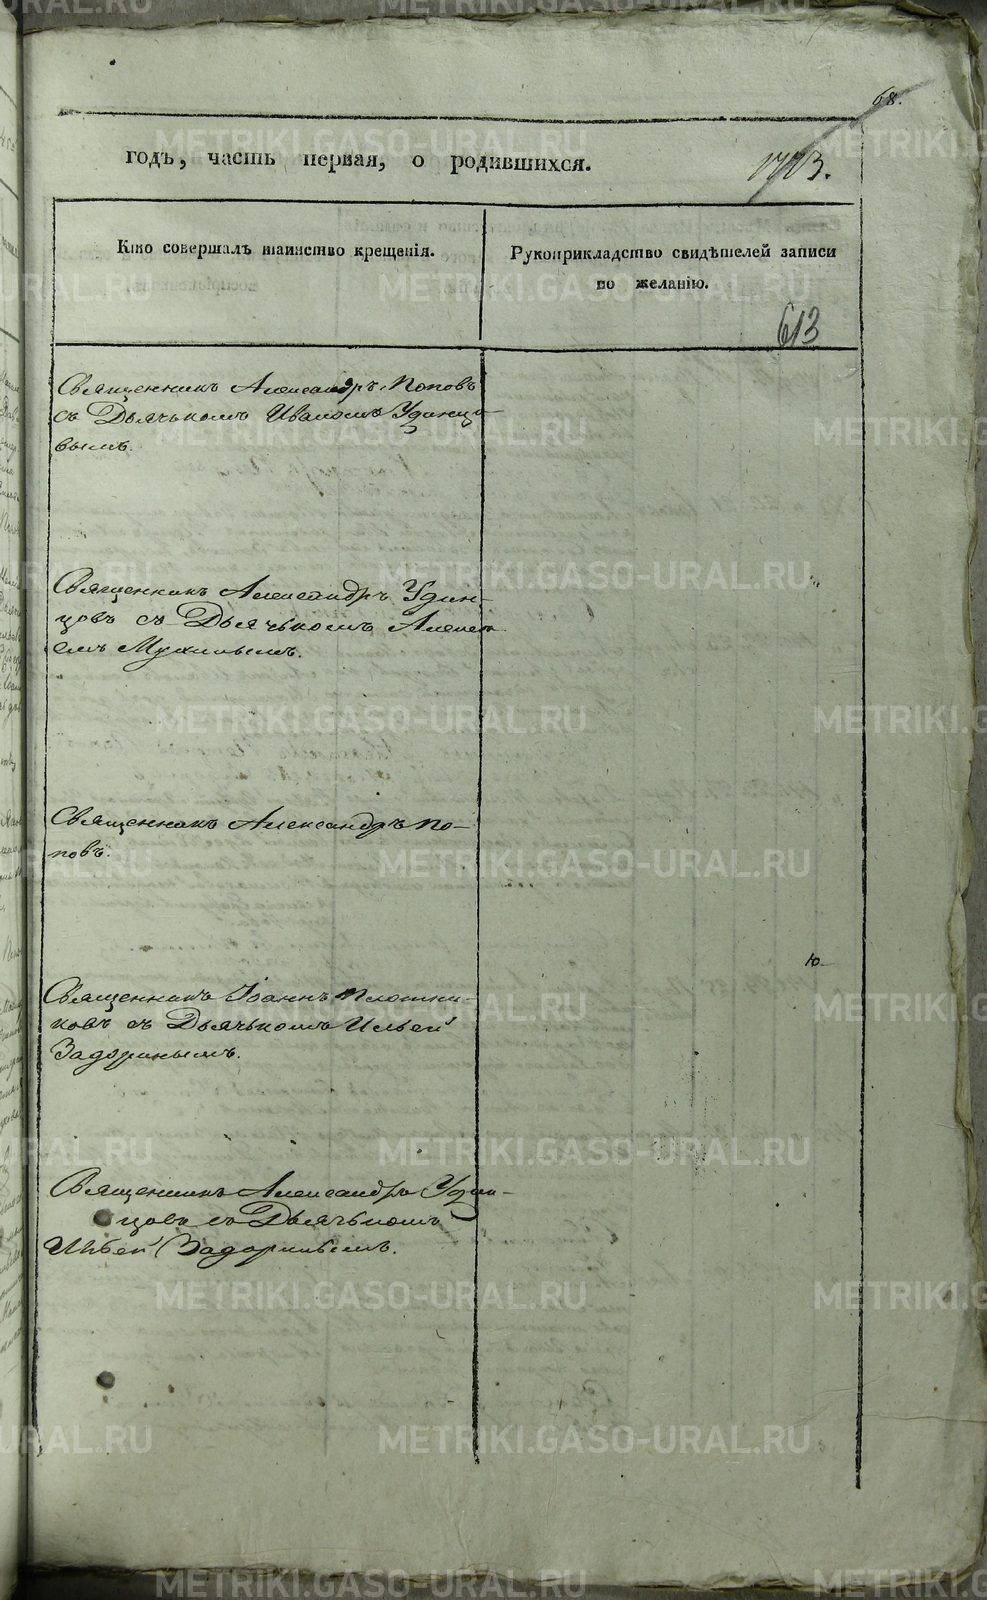 68.
годъ, часть первая, о родившихся.
613
Кто совершалъ таинство крещенія.
Рукоприкладство свидѣтелей записи
по желанію.
Священникъ Александръ Поповъ
съ Дьячькомъ Иваномъ Удинцо-
вымъ.
Священникъ Александръ Удин-
цовъ съ Дьячькомъ Алексѣ-
емъ Мухинымъ.
Священникъ Александръ По-
повъ.
Священникъ Іоаннъ Плотни-
ковъ съ Дьячькомъ Ильей
Задоринымъ.
Священникъ Александръ Удин-
цовъ съ Дьячькомъ
Ильей Задоринымъ.
METRIKI.GASO-URAL.RU